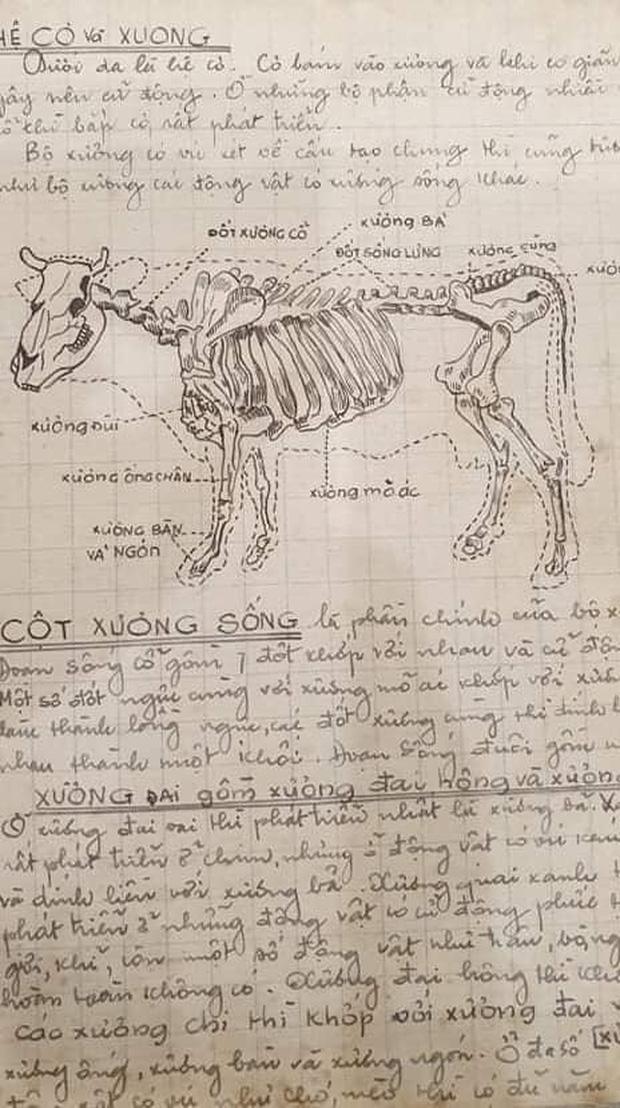 HỆ CƠ và XƯƠNG
Dưới da là hệ cơ. Cơ bám vào xương và khi cơ giãn
gây nên cử động. Ở những bộ phận cử động nhiều
cơ thì bắp cơ rất phát triển.
Bộ xương có vú xét về cấu tạo chung thì cũng
như bộ xương các động vật có xương sống khác.
xương BẢ
ĐỐT XƯƠNG CỔ
ĐỐT SỐNG LƯNG
xương cùng
xương ĐÙI
xương ỐNG CHÂN
xương mỏ ác
XƯƠNG BÀN
VÀ NGÓN
CỘT XƯƠNG SỐNG là phần chính của bộ
Đoạn sống cổ gồm 7 đốt khớp với nhau và cử
Một số đốt ngực cùng với xương mỏ ác khớp với
làm thành lồng ngực, các đốt xương cùng thì dính
nhau thành một khối. Đoạn sống đuôi gồm
XƯƠNG ĐAI gồm xương đai hông và xương
Ở xương đai vai thì phát triển nhất là xương bả.
rất phát triển ở chim, nhưng ở động vật có vú
và dính liền với xương bả. Xương quai xanh
phát triển ở những động vật có cử động phức
giơi, khỉ, còn một số động vật như trâu, bò
hoàn toàn không có. Xương đai hông thì
Các xương chi thì khớp với xương đai
xương ống, xương bàn và xương ngón. Ở đa số
động vật có vú như chó, mèo thì có đủ năm